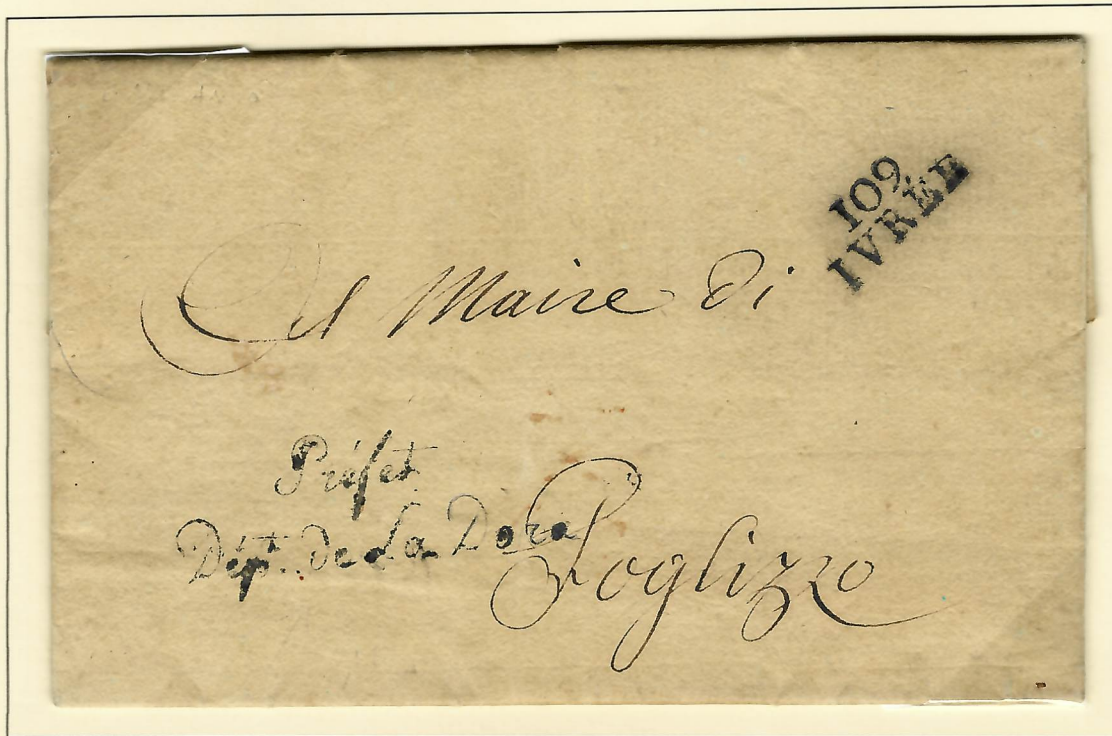 109
IVRÉE
Al Maire di
Préfet
Dépt. de la Doire
Foglizzo